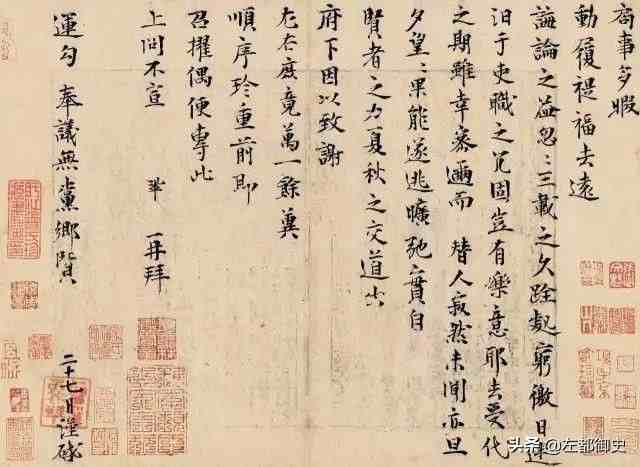 局事多暇
動履禔福去遠
誨論之益忽〻三載之久跧處窮徼日迷
汩于吏職之冗固豈有樂意耶去受代
之期雖幸密邇而替人寂然未聞亦旦
夕望〻果能遂逃曠弛實自
賢者之力夏秋之交道出
府下因以致謝
左右庶竟萬一餘冀
順序珍重前即
召擢偶便專此
上問不宣 鞏 再拜
運勾 奉議無黨鄉賢 二十七日謹啟
头条 @左都御史